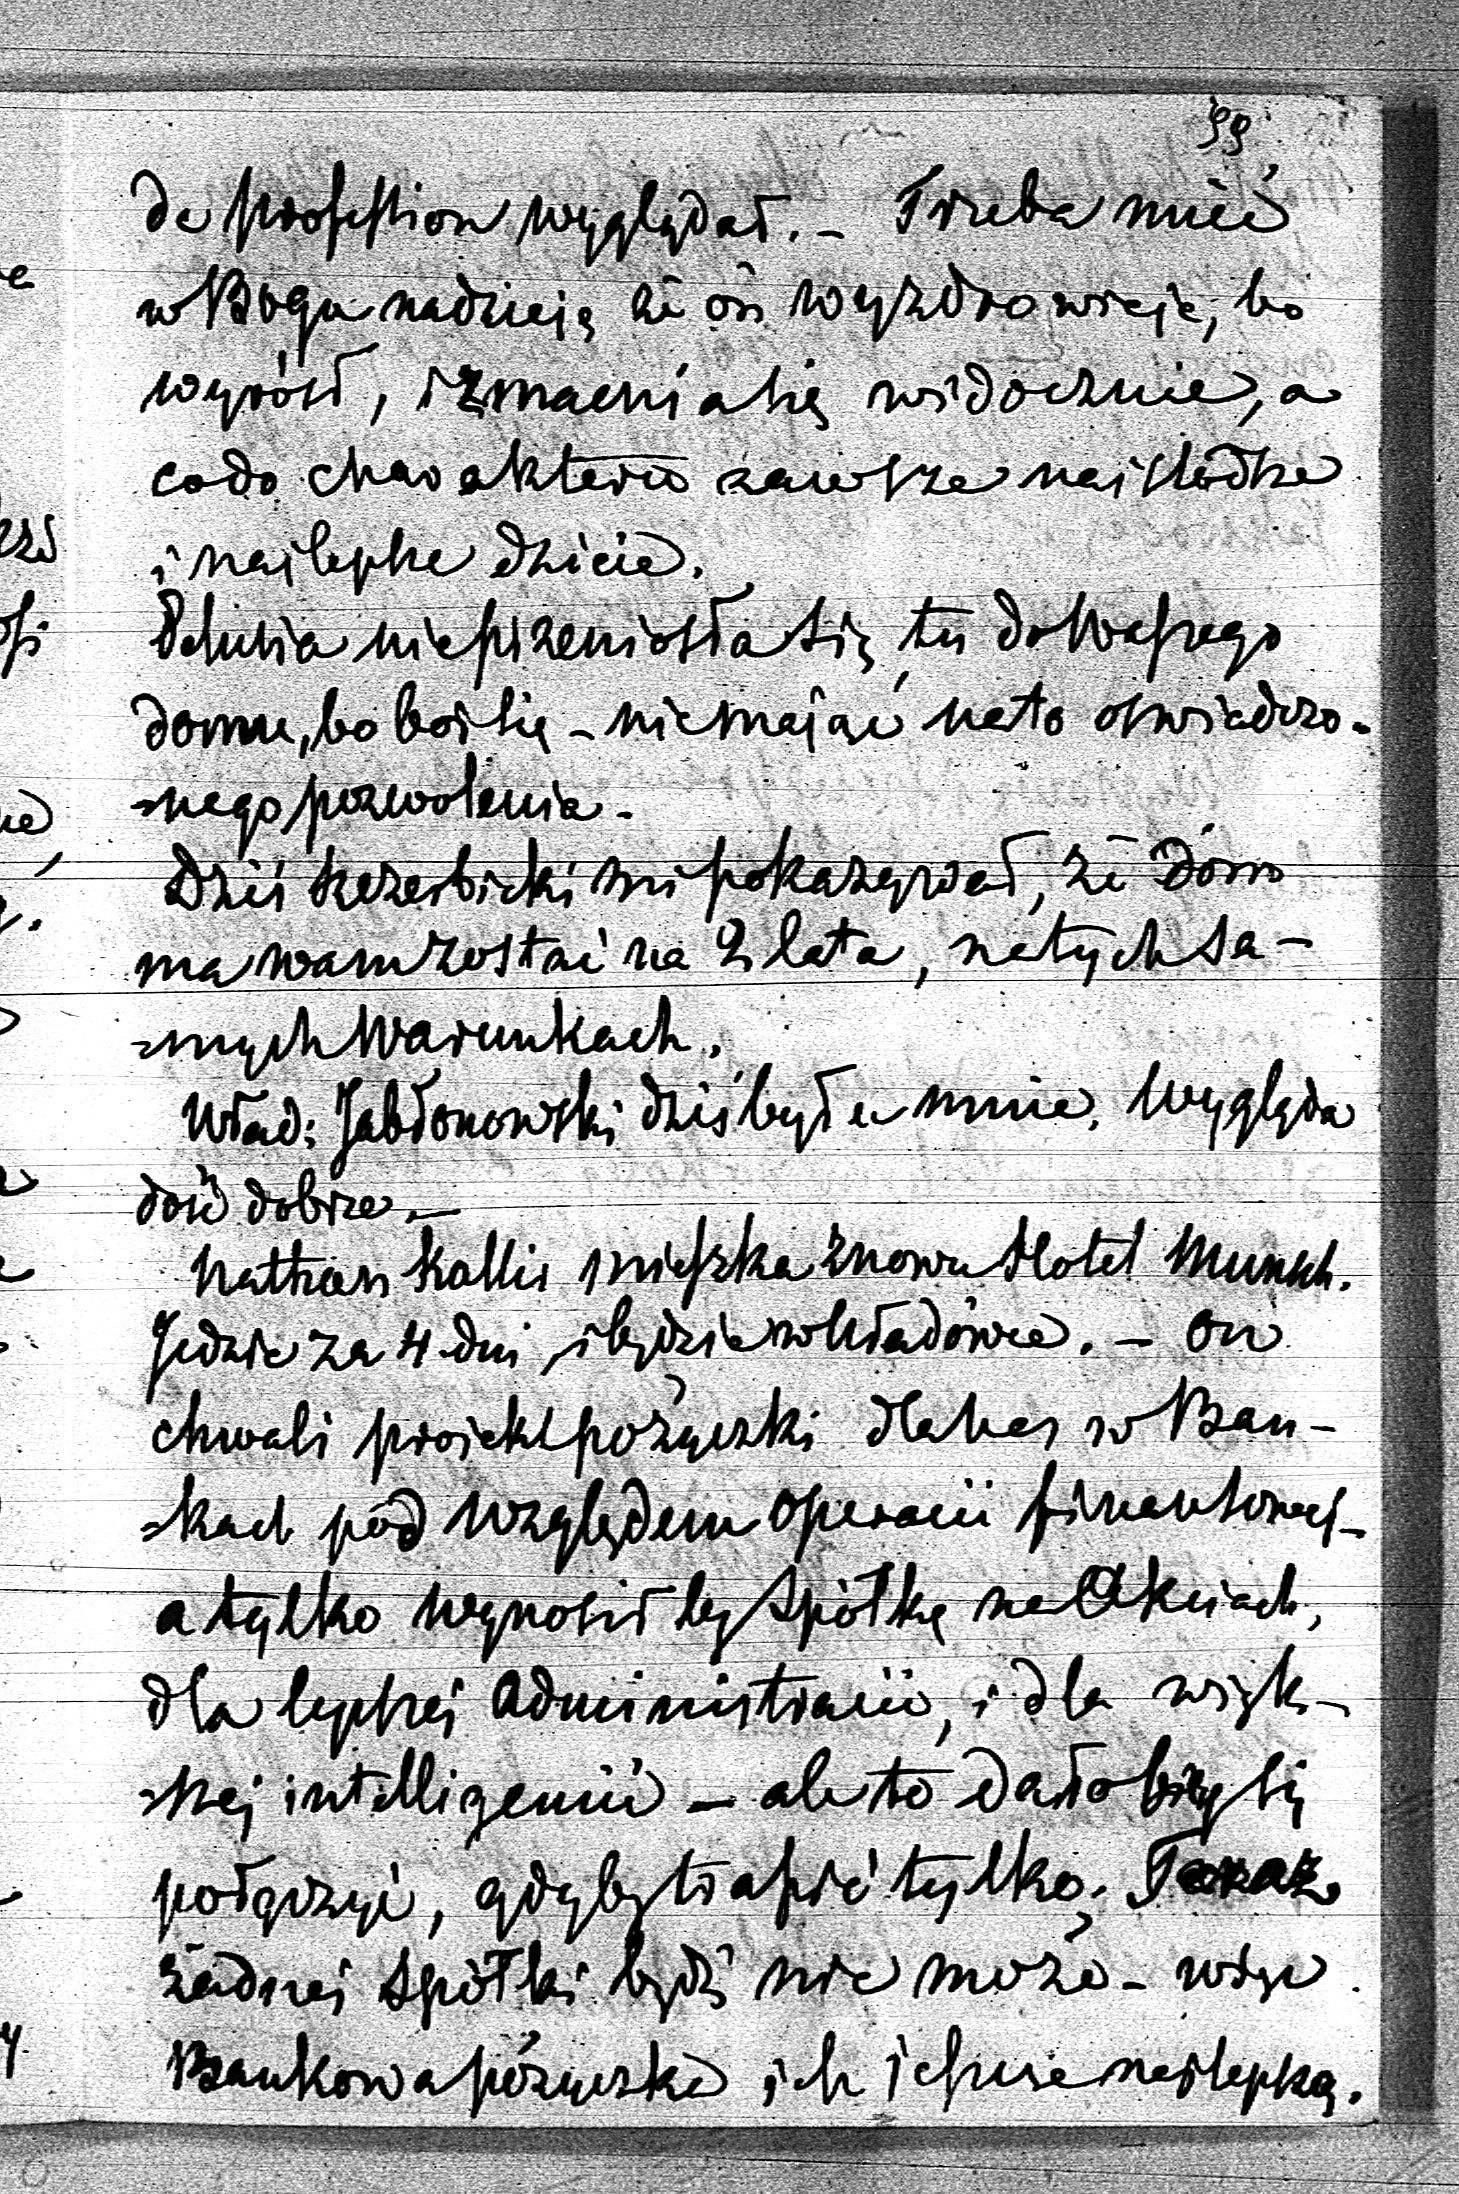 99
de profession wyglądał. – Trzeba mieć
w Bogu nadzieję że on wyzdrowieje, bo
wyrósł, i zmacnia się widocznie, a
co do charakteru zawsze najsłodsze
i najlepsze dziecie.
Delusia nieprzeniosła się tu do Waszego
domu, bo boi się – niemając na to oświadczo-
=nego pozwolenia –
Dziś Szczerbicki mi pokazywał, że Dom
ma wam zostać na 2 lata, na tych sa-
=mych Warunkach.
Wład: Jabłonowski dziś był u mnie, Wygląda
dość dobrze. –
Nathan Kallir mieszka znowu Hotel Munsch.
Jedzie za 4 dni, i będzie w Uładówce. – On
chwali projekt pożyczki dla nas w Ban-
=kach pod względem operacii finansowej –
a tylko wynosił by spółkę na Akciach,
dla lepszej administracii, i dla więk-
=szej intelligencii – ale to dało by się
połączyć, gdyby trafić tylko. Teraz
żadnej spółki bydź nie może – więc
Bankowa pożyczka jeszcze najlepszą.